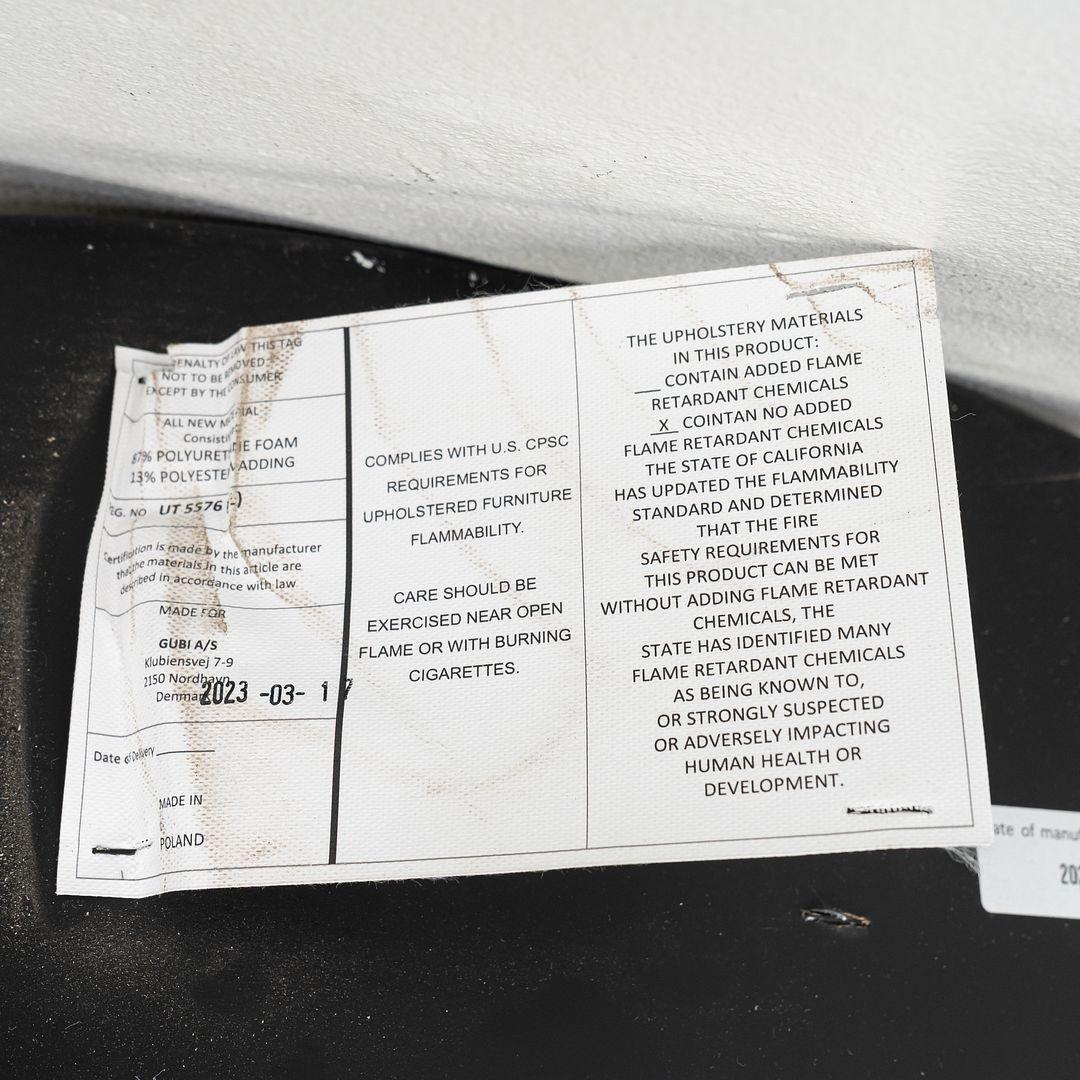 PENALTY OF LAW THIS TAG
NOT TO BE REMOVED
EXCEPT BY THE CONSUMER
ALL NEW
Consisti
87% POLYURET E FOAM
13% POLYESTE ADDING
EG. NO UT 5576 (-)
Certification is made by the manufacturer
that the materials in this article are
described in accordance with law
MADE FOR
GUBI A/S
Klubiensvej 7-9
2150 Nordhavn
Denmark
2023 -03- 17
Date of Delivery
MADE IN
POLAND
COMPLIES WITH U.S. CPSC
REQUIREMENTS FOR
UPHOLSTERED FURNITURE
FLAMMABILITY.
CARE SHOULD BE
EXERCISED NEAR OPEN
FLAME OR WITH BURNING
CIGARETTES.
THE UPHOLSTERY MATERIALS
IN THIS PRODUCT:
___ CONTAIN ADDED FLAME
RETARDANT CHEMICALS
_X_ COINTAN NO ADDED
FLAME RETARDANT CHEMICALS
THE STATE OF CALIFORNIA
HAS UPDATED THE FLAMMABILITY
STANDARD AND DETERMINED
THAT THE FIRE
SAFETY REQUIREMENTS FOR
THIS PRODUCT CAN BE MET
WITHOUT ADDING FLAME RETARDANT
CHEMICALS, THE
STATE HAS IDENTIFIED MANY
FLAME RETARDANT CHEMICALS
AS BEING KNOWN TO,
OR STRONGLY SUSPECTED
OR ADVERSELY IMPACTING
HUMAN HEALTH OR
DEVELOPMENT.
ate of manuf
202